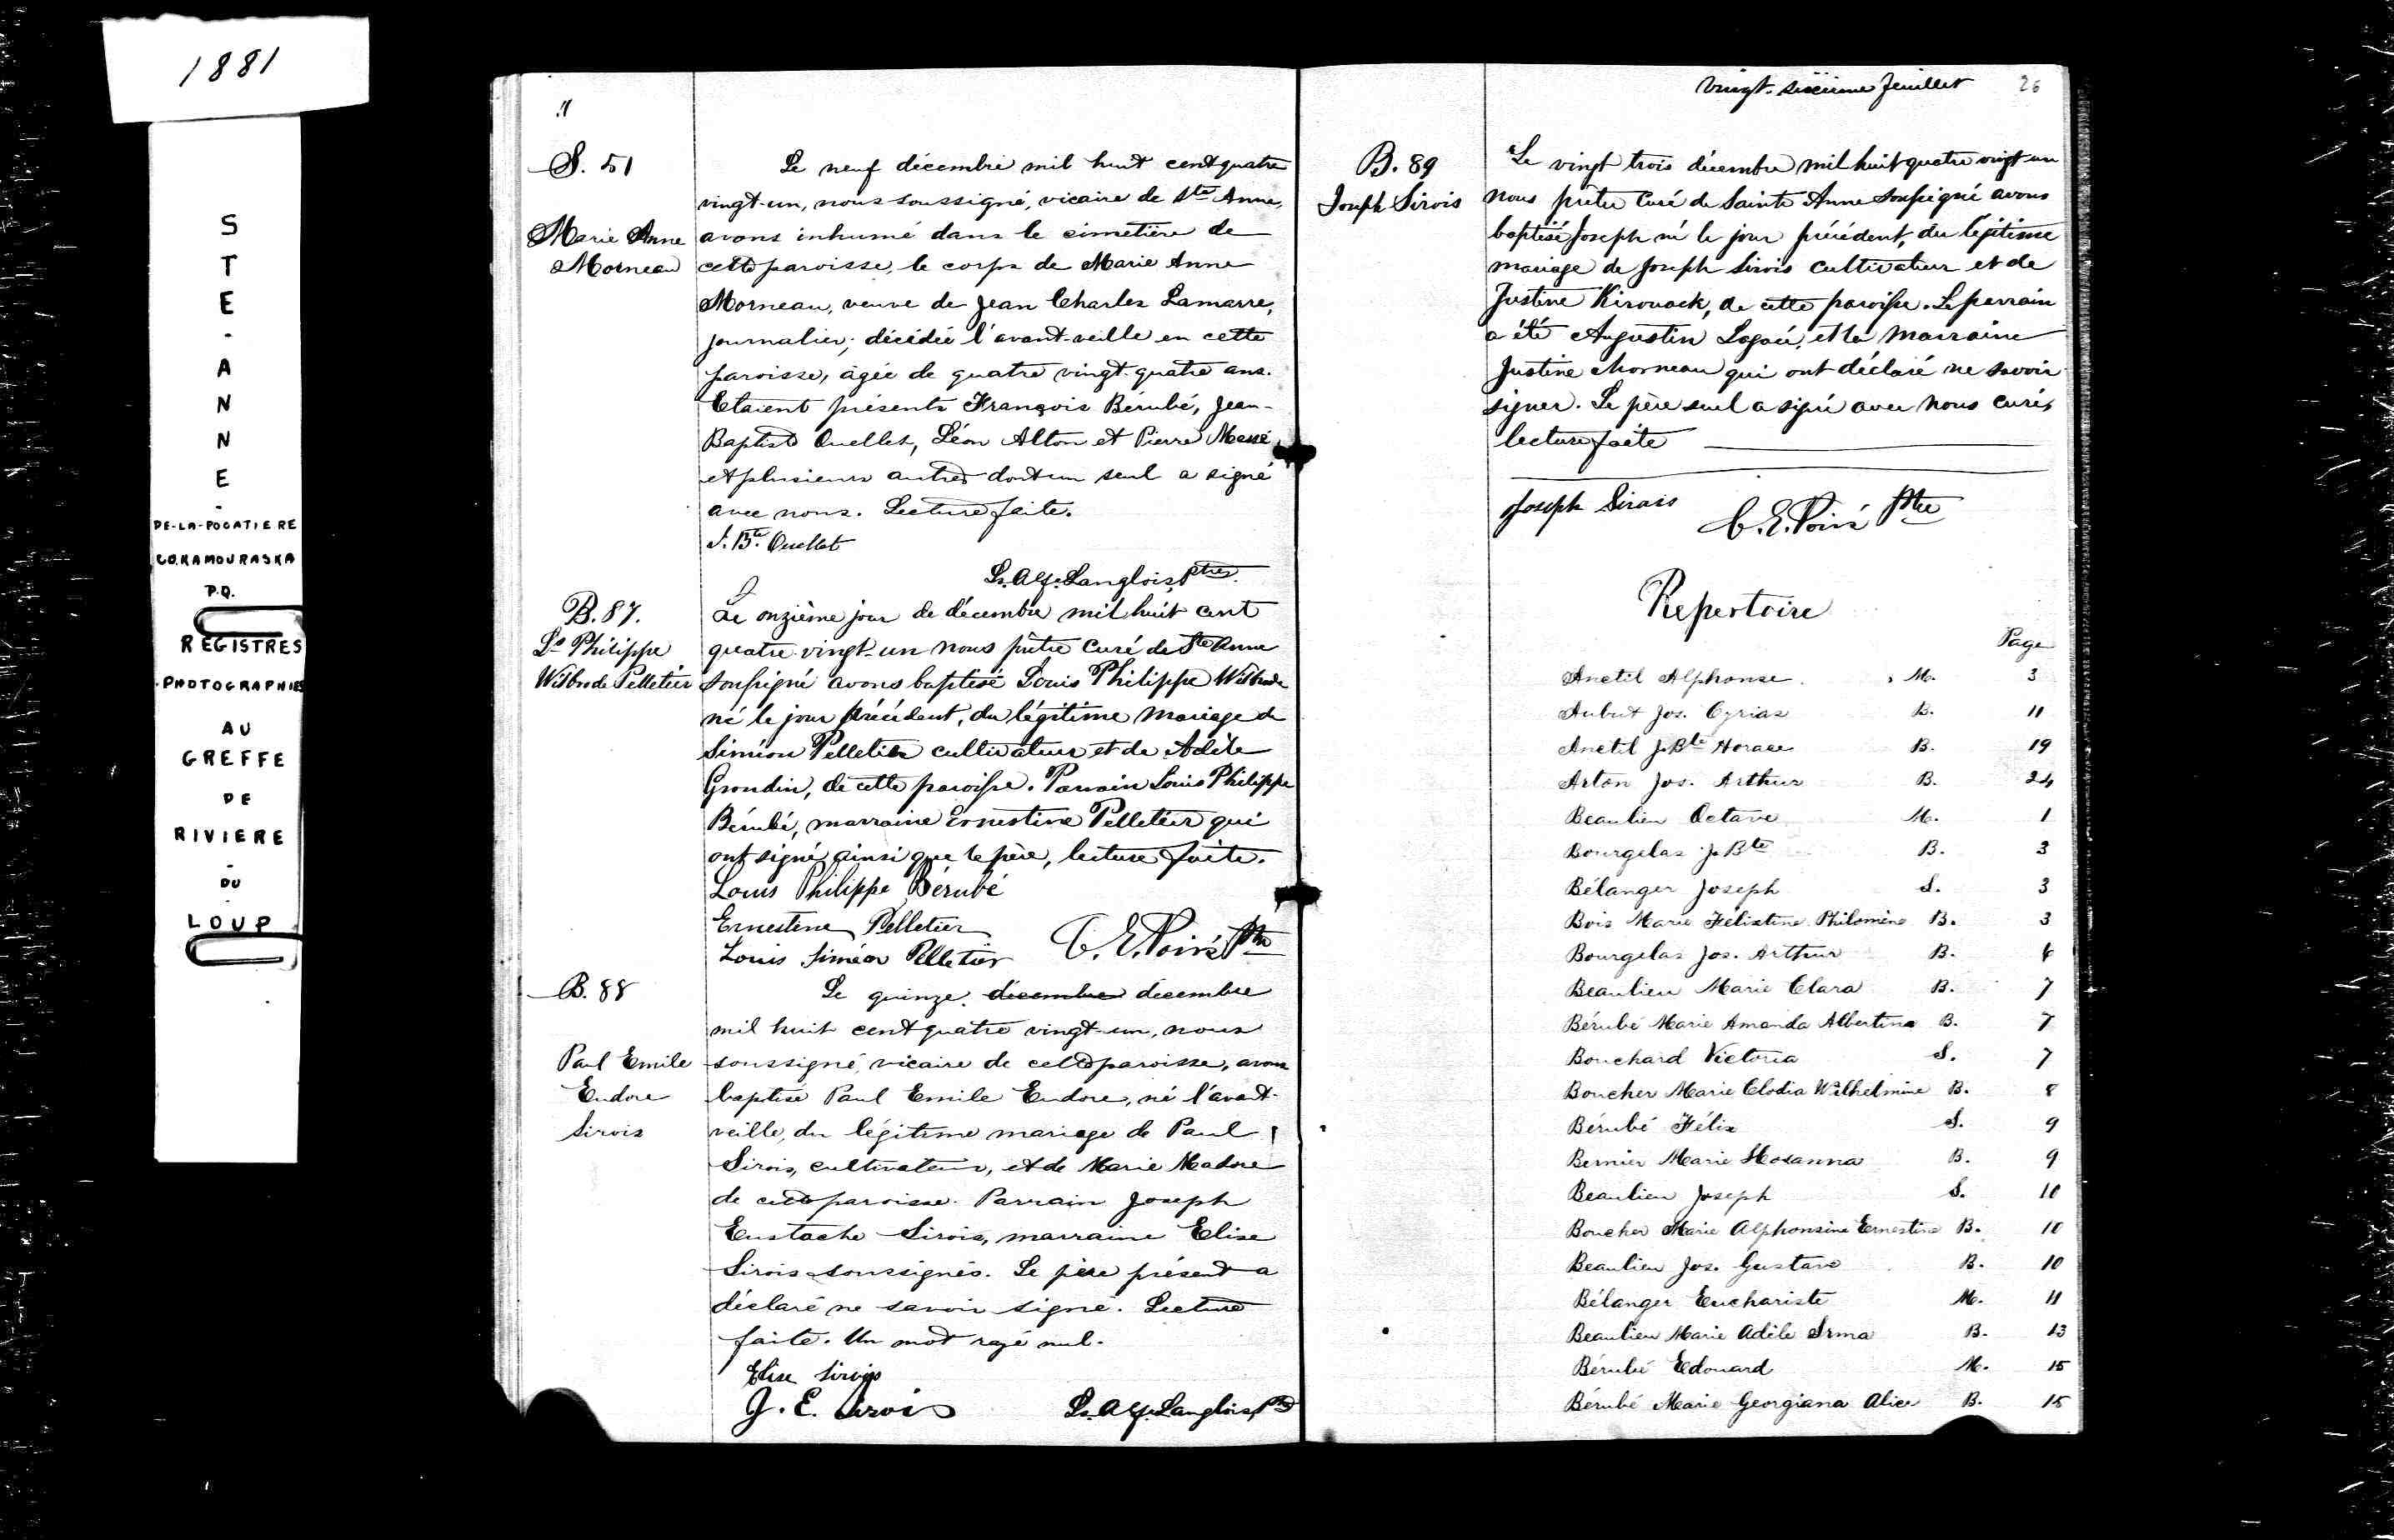 1881
STE-ANNE-
DE-LA-POCATIERE
CO. KAMOURASKA
P.Q.
REGISTRES
PHOTOGRAPHIES
AU
GREFFE
DE
RIVIERE
-
DU
-
LOUP
S. 51
Marie Anne
Morneau
Le neuf décembre mil huit cent quatre
vingt-un, nous soussigné, vicaire de Ste Anne,
avons inhumé dans le cimetière de
cette paroisse, le corps de Marie Anne
Morneau, veuve de Jean Charles Lamarre,
journalier, décédée l'avant-veille en cette
paroisse, âgée de quatre vingt-quatre ans.
Etaient présents François Bérubé, Jean-
Baptiste Ouellet, Léon Alton et Pierre Massé
et plusieurs autres dont un seul a signé
avec nous. Lecture faite.
J. Bte. Ouellet
Ls. Alf. Langlois, Ptre.
B. 87.
Ls Philippe
Wilbrode Pelletier
Le onzième jour de décembre mil huit cent
quatre-vingt-un nous prêtre curé de Ste Anne
soussigné avons baptisé Louis Philippe Wilbrode
né le jour précédent, du légitime mariage de
Siméon Pelletier cultivateur et de Adèle
Grondin, de cette paroisse. Parrain Louis Philippe
Bérubé, marraine Ernestine Pelletier qui
ont signé ainsi que le père, lecture faite.
Louis Philippe Bérubé
Ernestine Pelletier
Louis Siméon Pelletier C. E. Poiré Ptre
B. 88
Paul Emile
Eudore
Sirois
Le quinze décembre décembre
mil huit cent quatre vingt-un, nous
soussigné, vicaire de cette paroisse, avons
baptisé Paul Emile Eudore, né l'avant-
veille, du légitime mariage de Paul
Sirois, cultivateur, et de Marie Madore
de cette paroisse. Parrain Joseph
Eustache Sirois, marraine Elise
Sirois soussignés. Le père présent a
déclaré ne savoir signé. Lecture
faite. Un mot rayé nul.
Elise Sirois
J. E. Sirois Ls. Alf. Langlois, Ptre
vingt-sixième feuillet 26
B. 89
Joseph Sirois
Le vingt trois décembre mil huit quatre vingt-un
nous prêtre curé de Sainte Anne soussigné avons
baptisé Joseph né le jour précédent, du légitime
mariage de Joseph Sirois cultivateur et de
Justine Kirouack, de cette paroisse. Le parrain
a été Augustin Lagacé, et la marraine
Justine Morneau qui ont déclaré ne savoir
signer. Le père seul a signé avec nous curé,
lecture faite
Joseph Sirois C. E. Poiré Ptre
Repertoire
Page
Anctil Alphonse. M. 3
Aubut Jos. Cyrias B. 11
Anctil J. Bte Horace B. 19
Arton Jos. Arthur B. 24
Beaulieu Octave M. 1
Bourgelas J. Bte B. 3
Bélanger Joseph S. 3
Bois Marie Félixtine Philomène B. 3
Bourgelas Jos. Arthur B.
Beaulieu Marie Clara B. 7
Bérubé Marie Amanda Albertine B. 7
Bouchard Victoria S. 7
Boucher Marie Clodia Wilhelmine B. 8
Bérubé Félix S. 9
Bernier Marie Hosanna B. 9
Beaulieu Joseph S. 10
Boucher Marie Alphonsine Ernestine B. 10
Beaulieu Jos. Gustave B. 10
Bélanger Euchariste M. 11
Beaulieu Marie Adèle Irma B. 13
Bérubé Edouard M. 15
Bérubé Marie Georgiana Alice B. 15